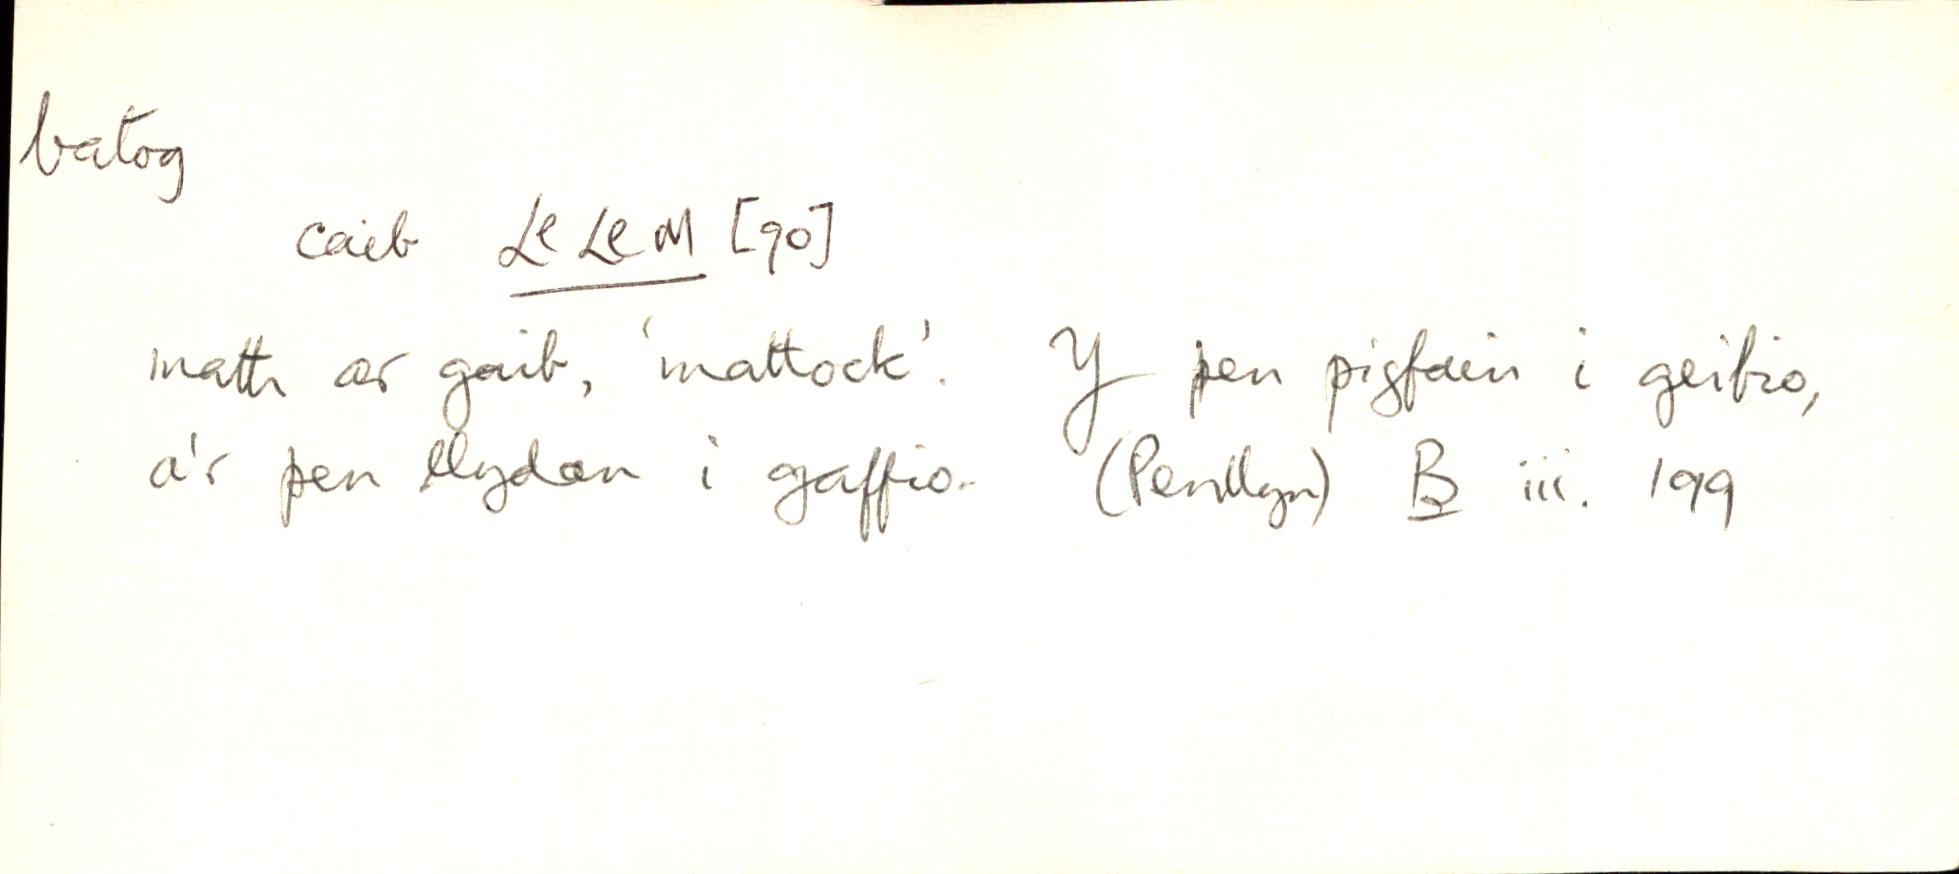 batog
caib LLLLM [90]
math ar gaib, 'mattock'. Y pen pigfain i geibio,
a'r pen llydan i gaffio. (Penllyn) B iii. 199